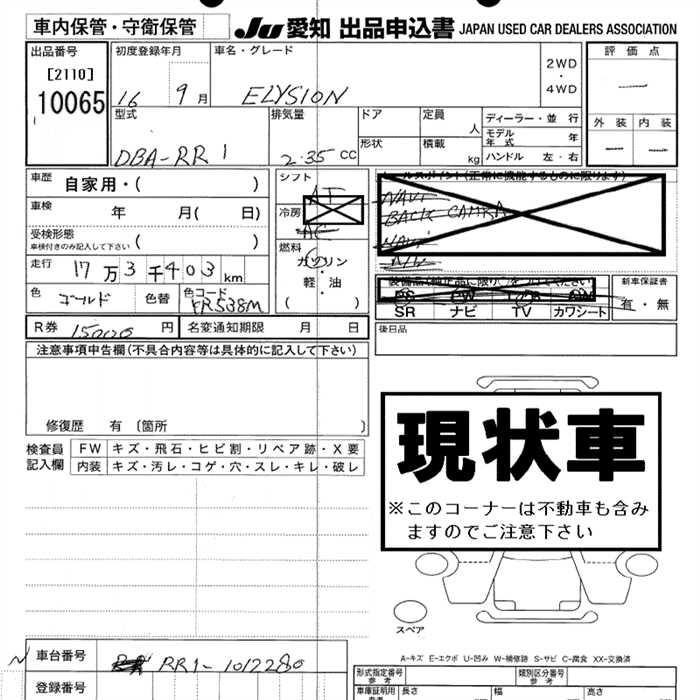 車内保管・守衛保管
JU 愛知 出品申込書 JAPAN USED CAR DEALERS ASSOCIATION
出品番号
[2110]
10065
初度登録年月
16 9月
車名・グレード
ELYSION
2WD
・
4WD
評価点
—
外装 内装
— —
型式
DBA-RR1
排気量
2.35 cc
ドア
定員
人
形状
積載
kg
ディーラー・並行
モデル年式 年
ハンドル 左・右
車歴 自家用・( )
車検 年 月( 日)
受検形態
車検付きのみ記入して下さい ( )
走行 17万3千403km
色 ゴールド 色替 色コード YR538M
シフト AT
冷房 AC
燃料
ガソリン
・
軽・油
( )
セールスポイント(正常に機能するものに限ります)
NAVI
BACK CAMRA
NAVI
A/W
装備品(純正品に限り○をつけてください)
PS PW AW
SR ナビ TV カワシート
新車保証書
有・無
R券 15000円 名変通知期限 月 日
後日品
注意事項申告欄(不具合内容等は具体的に記入して下さい)
修復歴 有〔箇所 〕
検査員
記入欄
FW キズ・飛石・ヒビ割・リペア跡・X要
内装 キズ・汚レ・コゲ・穴・スレ・キレ・破レ
現状車
※このコーナーは不動車も含み
ますのでご注意下さい
スペア
A-キズ E-エクボ U-凹み W-補修跡 S-サビ C-腐食 XX-交換済
車台番号 RR1-1012280
登録番号
形式指定番号
参考
類別区分番号
参考
車庫証明用
参考
長さ 幅 高さ